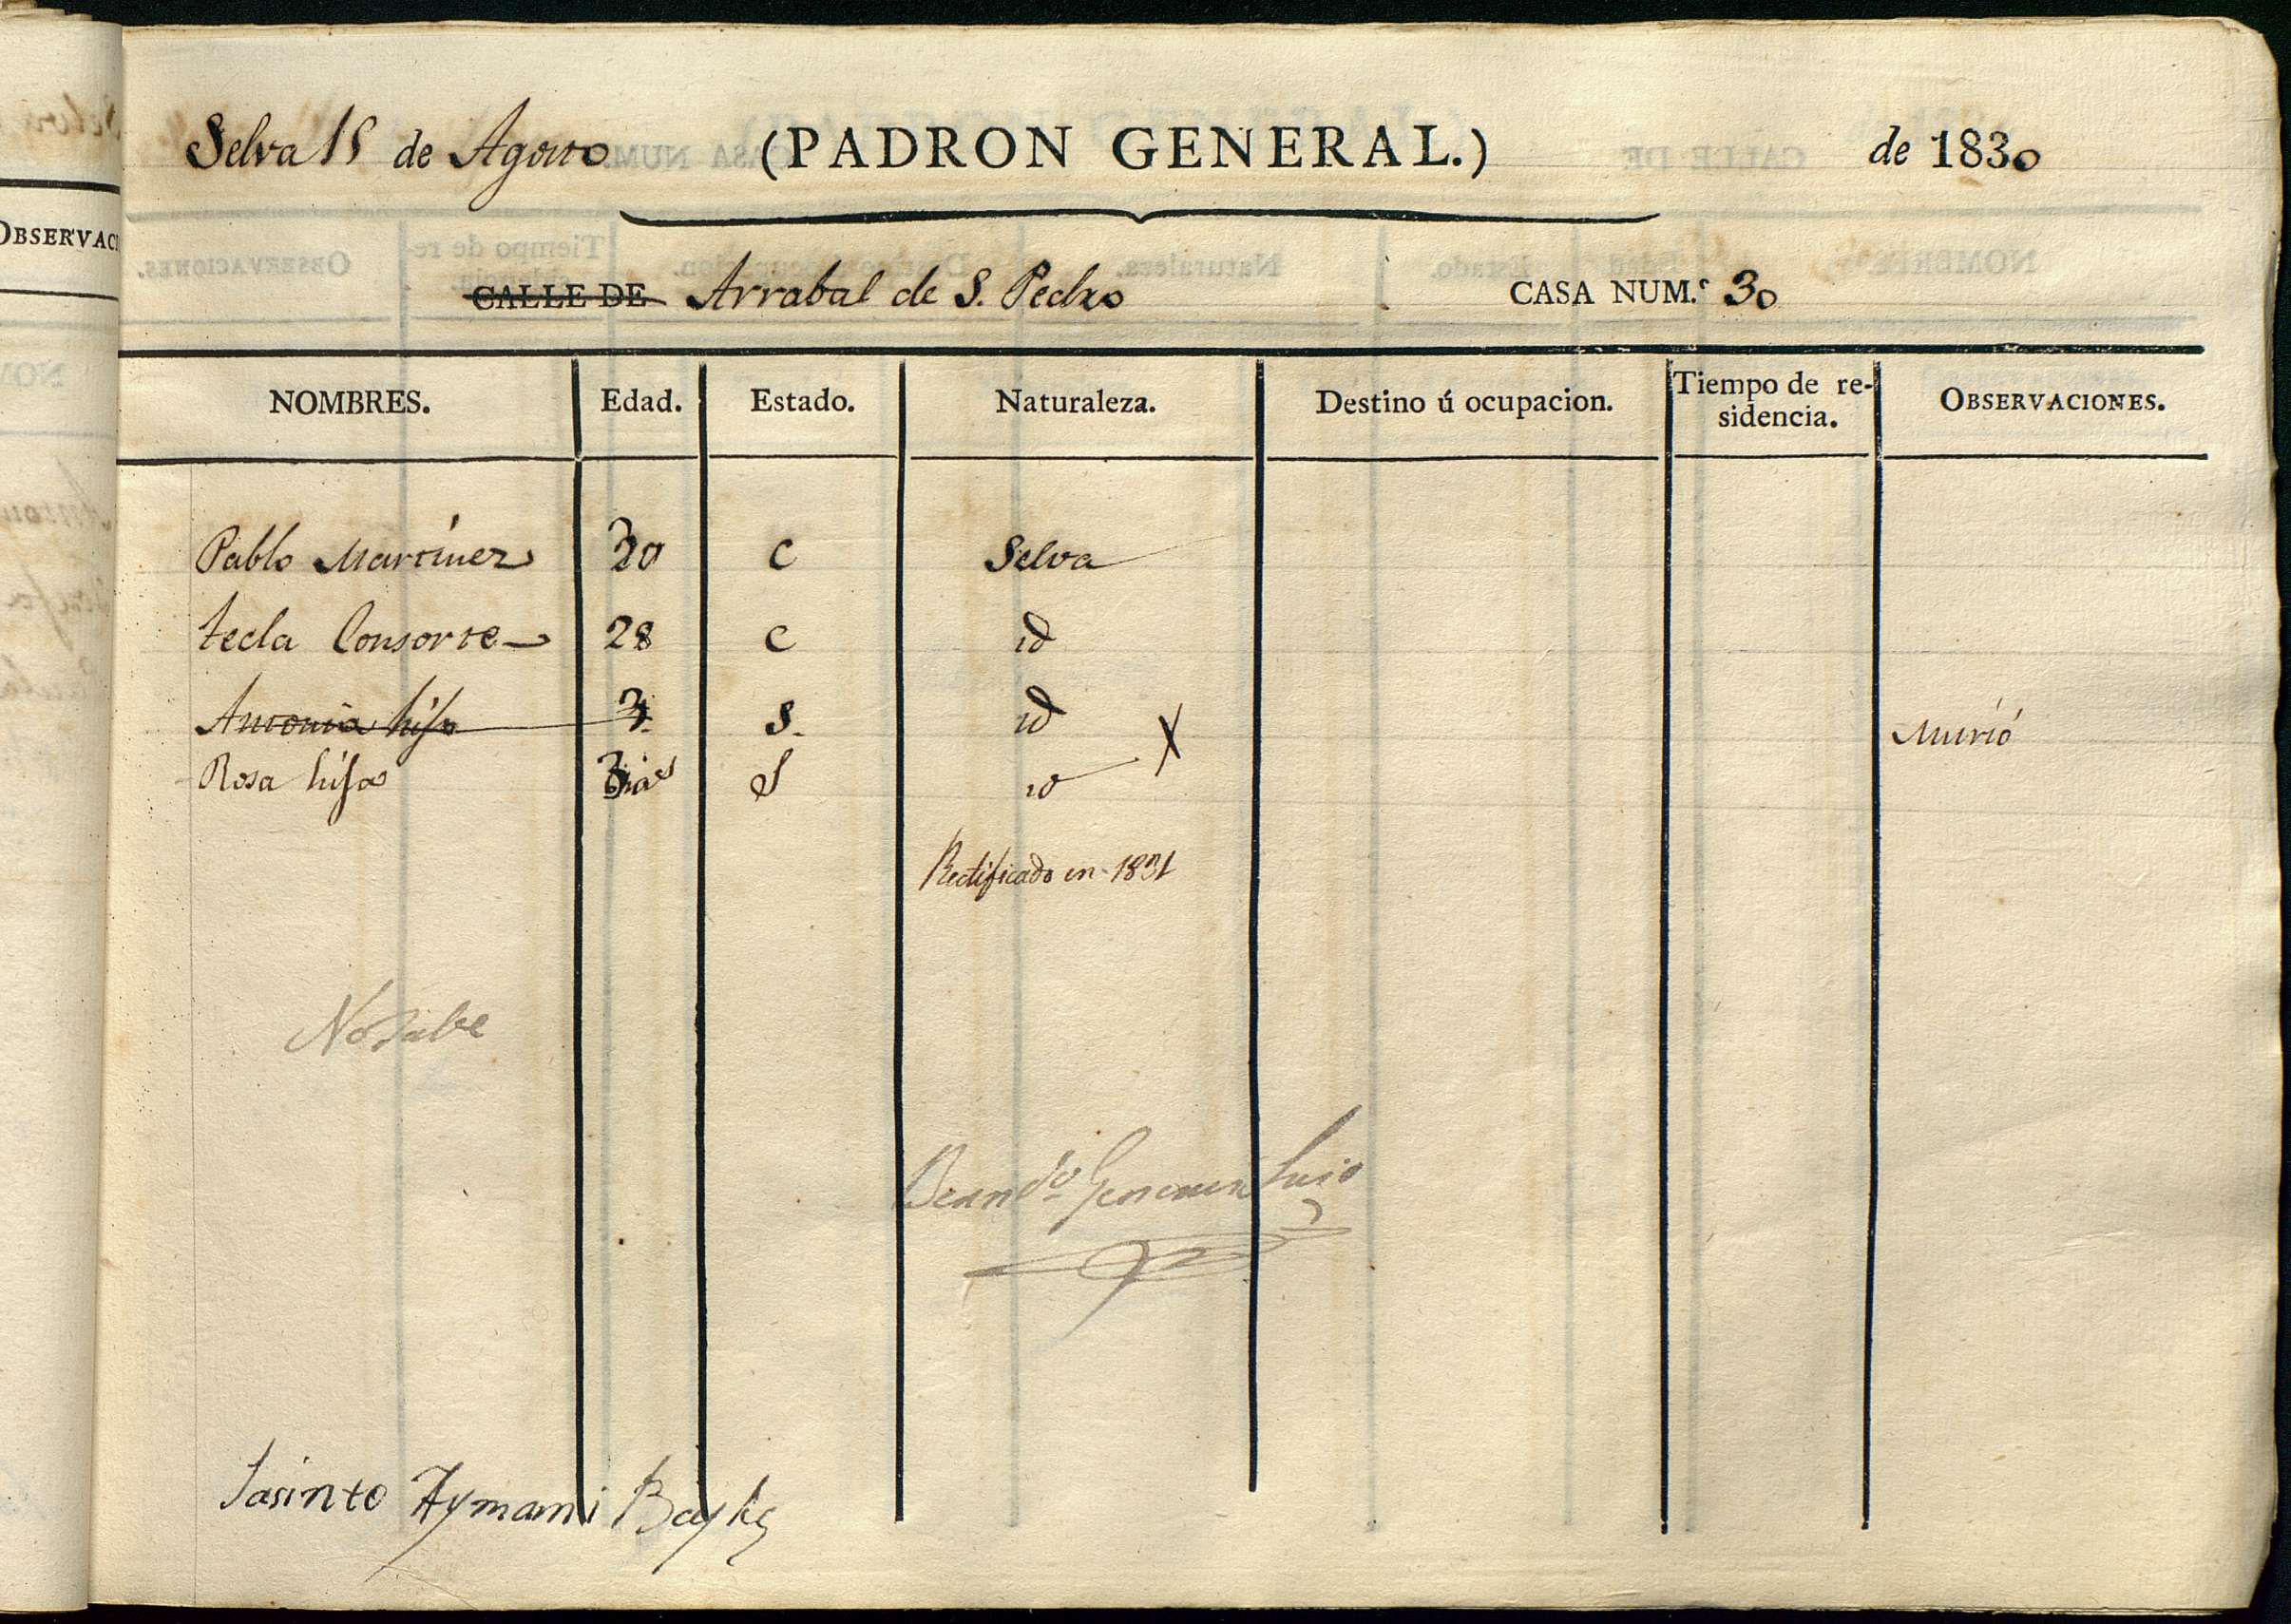 Selva 15 de Agosto (PADRON GENERAL.) de 1830
CALLE DE Arrabal de S. Pedro CASA NUM.º 30
NOMBRES. Edad. Estado. Naturaleza. Destino ú ocupacion. Tiempo de re-sidencia. OBSERVACIONES.
Pablo Martinez 30 C Selva
tecla Consorte 28 C id
Antonia hija 3 S. id Murió
Rosa hija dias S id X
Rectificado en 1831
No sabe
Jasinto Aymami Bayle
OBSERVACI